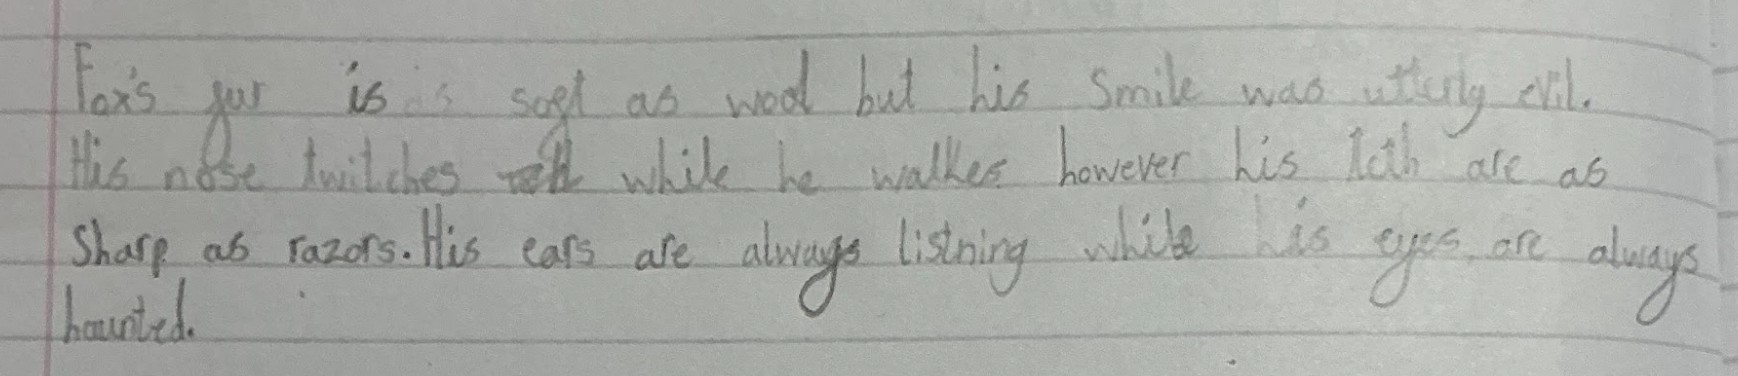 Fox's fur is as soft as wool but his smile was utterly evil.
His nose twitches while he walkes however his teth are as
sharp as razors. His ears are always listning while his eyes are always
haunted.